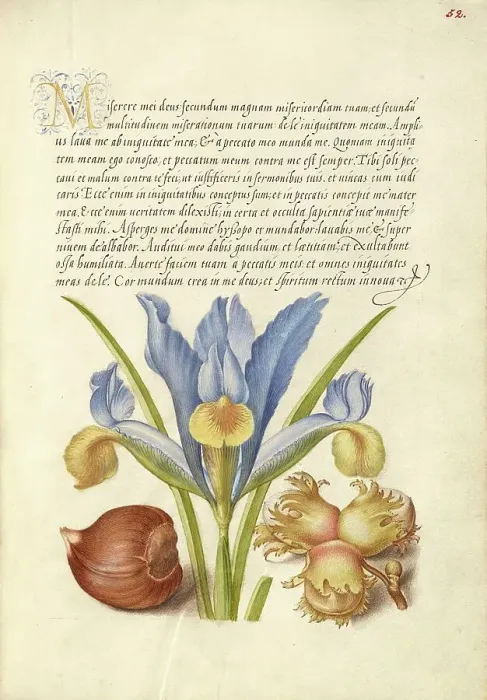 52.
Miserere mei deus secundum magnam misericordiam tuam; et secundū
multitudinem miserationum tuarum dele iniquitatem meam. Ampli-
us laua me ab iniquitate mea; & a peccato meo munda me. Quoniam iniquita
tem meam ego conosco, et peccatum meum contra me est semper. Tibi soli pec
caui et malum contra te feci, ut iustificeris in sermonibus tuis, et uincas cum iudi
caris. Ecce enim in iniquitatibus conceptus sum; et in peccatis concepit me mater
mea. Ecce enim veritatem dilexisti, incerta et occulta sapientiæ tuæ manife
stasti mihi. Asperges me domine hyssopo et mundabor, lauabis me & super
niuem dealbabor. Auditui meo dabis gaudium, et lætitiam; et exultabunt
ossa humiliata. Auerte faciem tuam a peccatis meis et omnes iniquitates
meas dele. Cor mundum crea in me deus; et spiritum rectum innoua